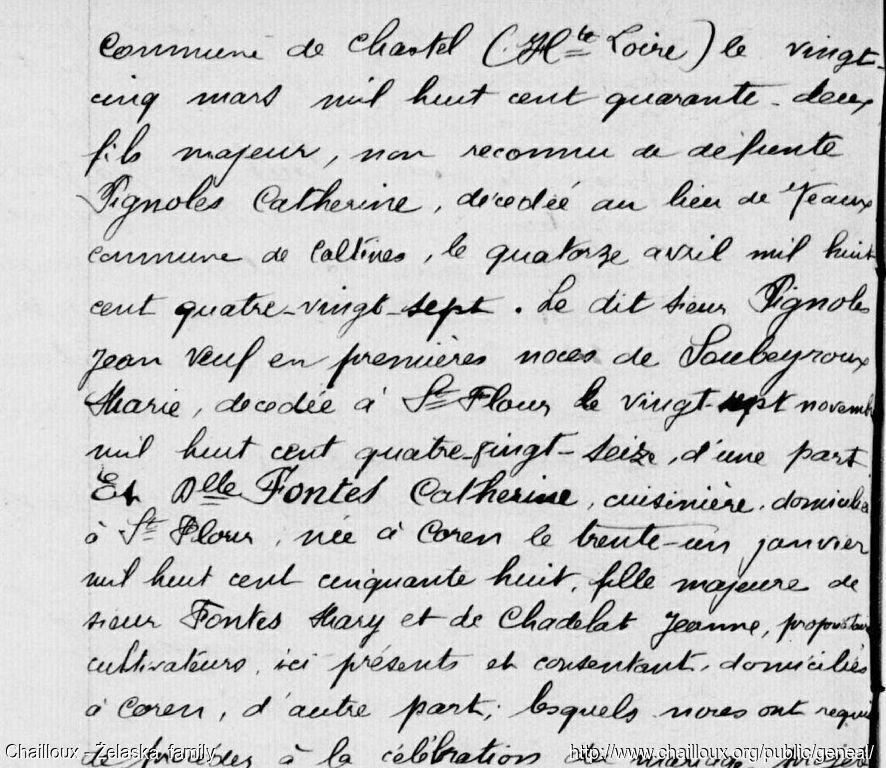 commune de Chastel (Hte Loire) le vingt-
cinq mars mil huit cent quarante-deux
fils majeur, non reconnu de défunte
Pignoles Catherine, décedée au lieu de Jeaux
commune de Coltines, le quatorze avril mil huit
cent quatre-vingt-sept. Le dit sieur Pignoles
Jean veuf en premières noces de Soubeyroux
Marie, decedée à St Flour le vingt-sept novemb
mil huit cent quatre-vingt-seize, d'une part
Et Dlle Fontes Catherine, cuisinière, domiciliée
à St Flour, née à Coren le trente-un janvier
mil huit cent cinquante huit, fille majeure de
sieur Fontes Mary et de Chadelat Jeanne, propriétaires
cultivateurs, ici présents et consentant, domiciliés
à Coren, d'autre part; lesquels nous ont requis
de procéder à la célébration du mariage
Chailloux - Zelaska family
http://www.chailloux.org/public/geneal/